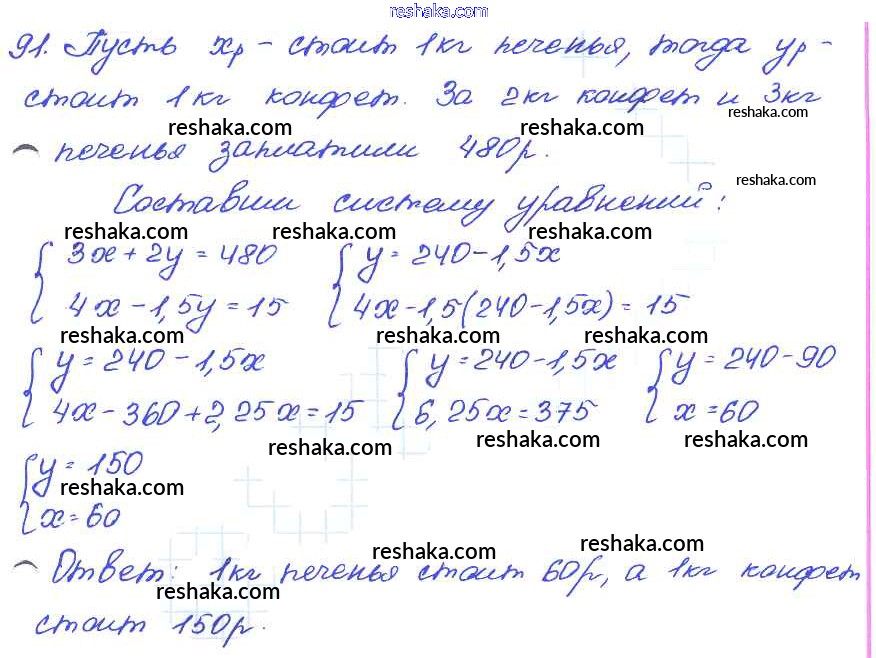 reshaka.com
91. Пусть xр - стоит 1кг печенья, тогда yр -
стоит 1кг конфет. За 2кг конфет и 3кг
reshaka.com reshaka.com reshaka.com
печенья заплатили 480р.
reshaka.com
Составим систему уравнений:
reshaka.com reshaka.com reshaka.com
3x + 2y = 480 y = 240 - 1,5x
4x - 1,5y = 15 4x - 1,5(240 - 1,5x) = 15
reshaka.com reshaka.com reshaka.com
y = 240 - 1,5x y = 240 - 1,5x y = 240 - 90
4x - 360 + 2,25x = 15 6,25x = 375 x = 60
reshaka.com reshaka.com reshaka.com
y = 150
reshaka.com
x = 60
reshaka.com reshaka.com
Ответ: 1кг печенья стоит 60р, а 1кг конфет
reshaka.com
стоит 150р.